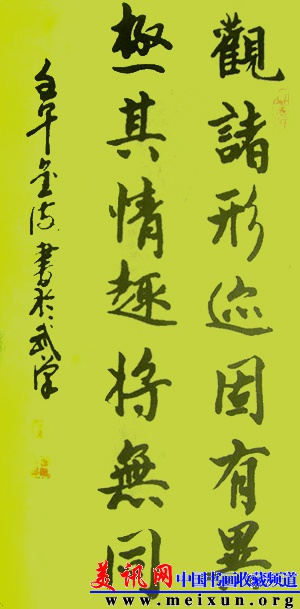 觀諸形迹固有異
極其情趣將無同
壬午金波書於武漢
美讯网 中国书画收藏频道
www.meixun.org